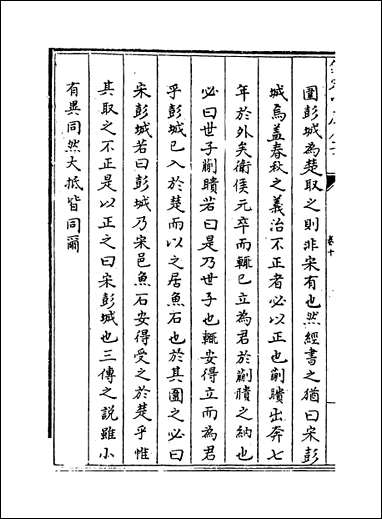 卷十
圍彭城為楚取之則非宋有也然經書之猶曰宋彭
城焉盖春秋之義治不正者必以正也蒯聵出奔七
年於外矣衛侯元卒而輒已立為君於蒯聵之納也
必曰世子蒯聵若曰是乃世子也輒安得立而為君
乎彭城已入於楚而以之居魚石也於其圍之必曰
宋彭城若曰彭城乃宋邑魚石安得受之於楚乎惟
其取之不正是以正之曰宋彭城也三傳之説雖小
有異同然大抵皆同爾